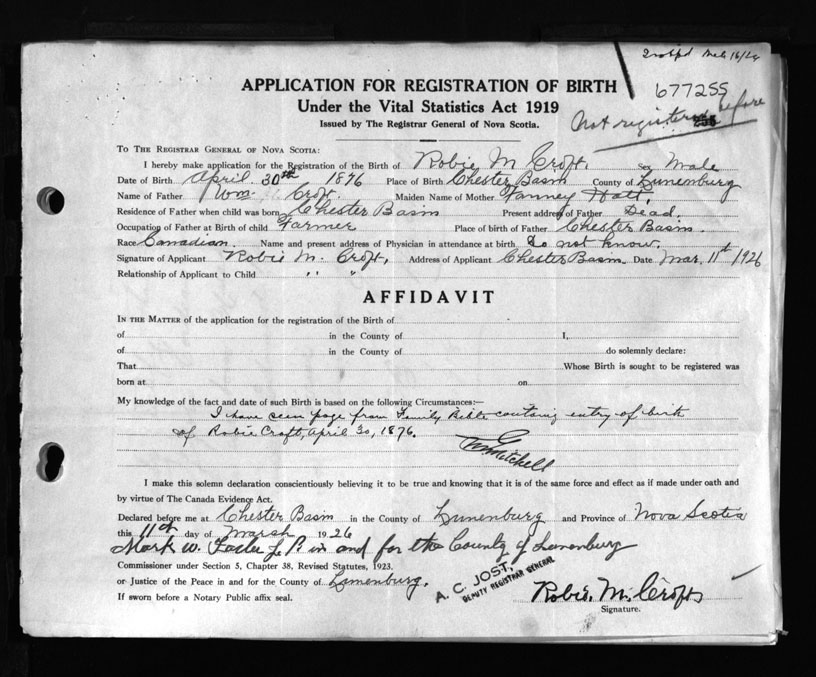 677255
Not registered before
APPLICATION FOR REGISTRATION OF BIRTH
Under the Vital Statistics Act 1919
Issued by The Registrar General of Nova Scotia.
TO THE REGISTRAR GENERAL OF NOVA SCOTIA:
I hereby make application for the Registration of the Birth of Robie M Croft. Sex Male
Date of Birth April 30th 1876 Place of Birth Chester Basin County of Lunenburg
Name of Father Wm Croft. Maiden Name of Mother Fanney Hatt,
Residence of Father when child was born Chester Basin Present address of Father Dead.
Occupation of Father at Birth of child Farmer Place of birth of Father Chester Basin.
Race Canadian. Name and present address of Physician in attendance at birth Do not know.
Signature of Applicant Robie M. Croft, Address of Applicant Chester Basin. Date Mar. 11th 1926
Relationship of Applicant to Child " "
AFFIDAVIT
IN THE MATTER of the application for the registration of the Birth of
of in the County of I,
of in the County of do solemnly declare:
That Whose Birth is sought to be registered was
born at on
My knowledge of the fact and date of such Birth is based on the following Circumstances:—
I have seen page from Family Bible containg entry of birth
of Robie Croft, April 30, 1876.
Mitchell
I make this solemn declaration conscientiously believing it to be true and knowing that it is of the same force and effect as if made under oath and
by virtue of The Canada Evidence Act.
Declared before me at Chester Basin in the County of Lunenburg and Province of Nova Scotia
this 11th day of March 1926
Mark W. J P in and for the County of Lunenburg
Commissioner under Section 5, Chapter 38, Revised Statutes, 1923.
or Justice of the Peace in and for the County of Lunenburg.
A. C. JOST,
DEPUTY REGISTRAR GENERAL
Robie. M. Croft
If sworn before a Notary Public affix seal.
Signature.